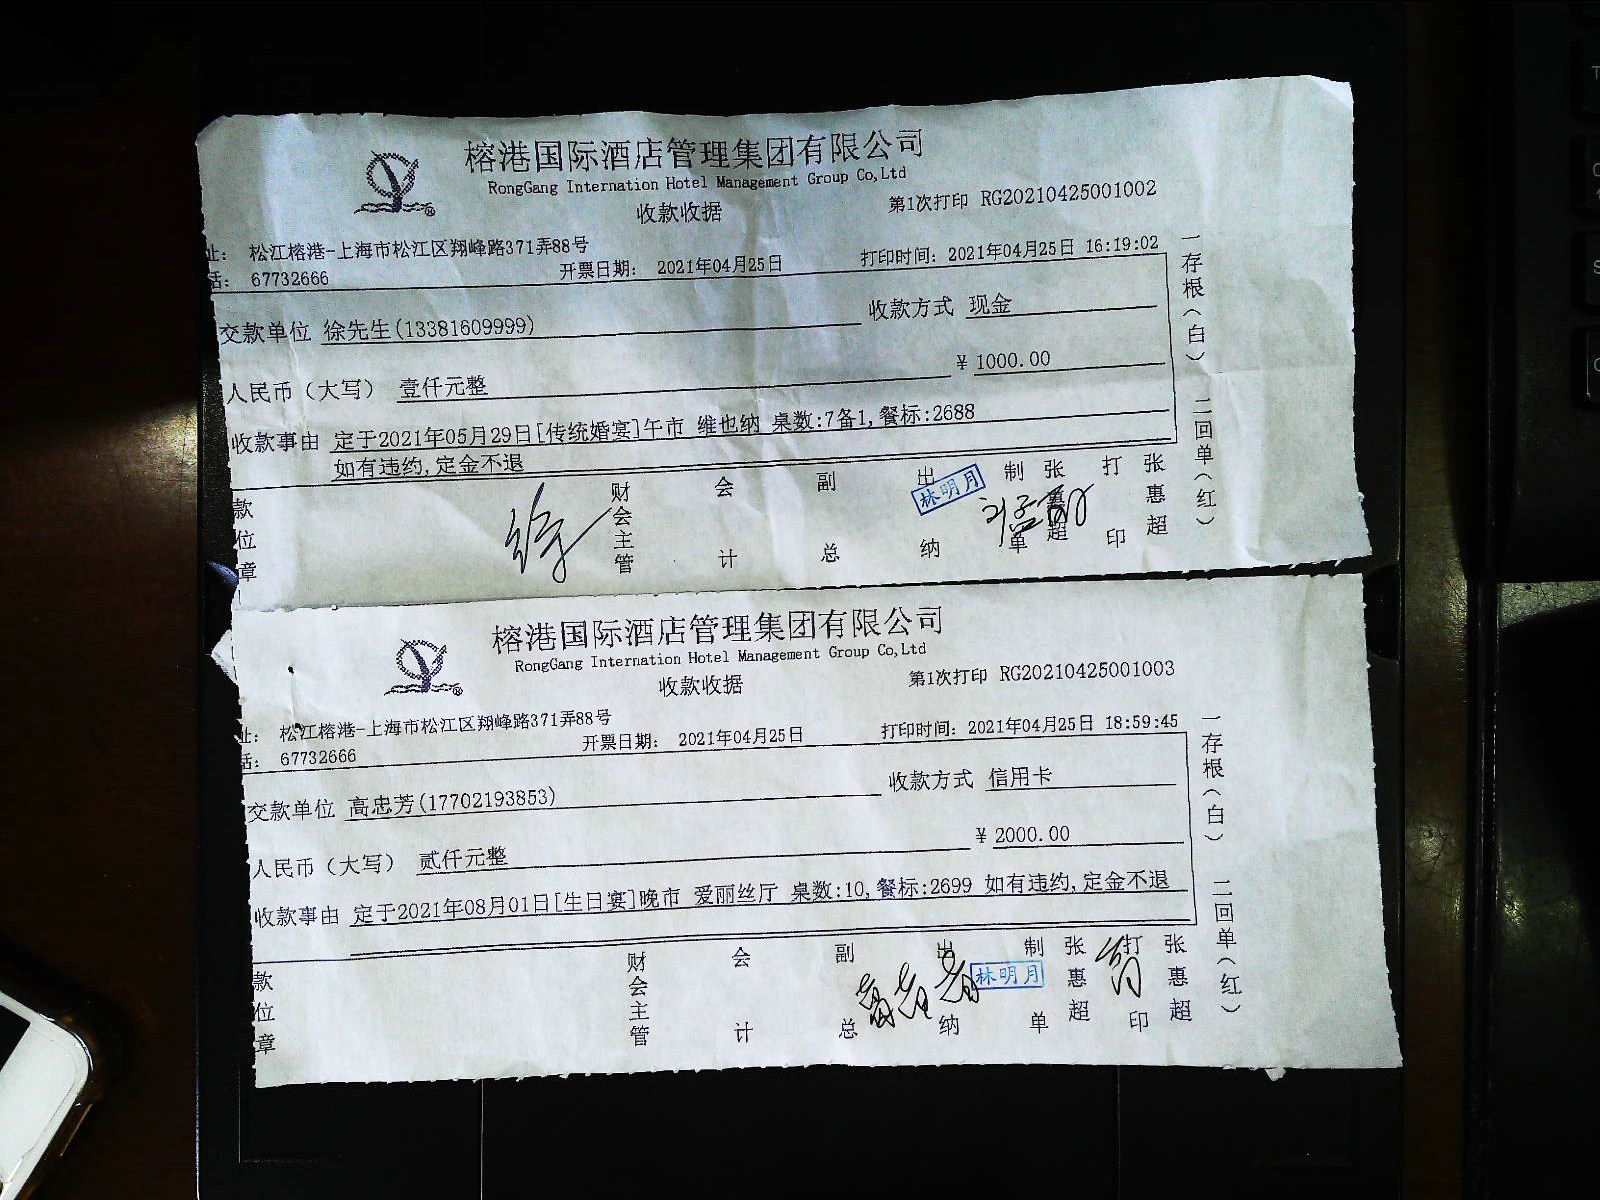 榕港国际酒店管理集团有限公司
RongGang Internation Hotel Management Group Co,Ltd
收款收据
第1次打印 RG20210425001002
址: 松江榕港-上海市松江区翔峰路371弄88号
话: 67732666
开票日期: 2021年04月25日
打印时间: 2021年04月25日 16:19:02
交款单位 徐先生(13381609999)
收款方式 现金
人民币（大写） 壹仟元整
¥ 1000.00
收款事由 定于2021年05月29日[传统婚宴]午市 维也纳 桌数:7备1,餐标:2688
如有违约,定金不退
款位章
徐
财会主管
会计
副总
出纳
林明月
制单
张惠超
打印
张惠超
一存根（白） 二回单（红）
榕港国际酒店管理集团有限公司
RongGang Internation Hotel Management Group Co,Ltd
收款收据
第1次打印 RG20210425001003
址: 松江榕港-上海市松江区翔峰路371弄88号
话: 67732666
开票日期: 2021年04月25日
打印时间: 2021年04月25日 18:59:45
交款单位 高忠芳(17702193853)
收款方式 信用卡
人民币（大写） 贰仟元整
¥ 2000.00
收款事由 定于2021年08月01日[生日宴]晚市 爱丽丝厅 桌数:10,餐标:2699 如有违约,定金不退
款位章
财会主管
会计
副总
出纳
林明月
制单
张惠超
打印
张惠超
一存根（白） 二回单（红）